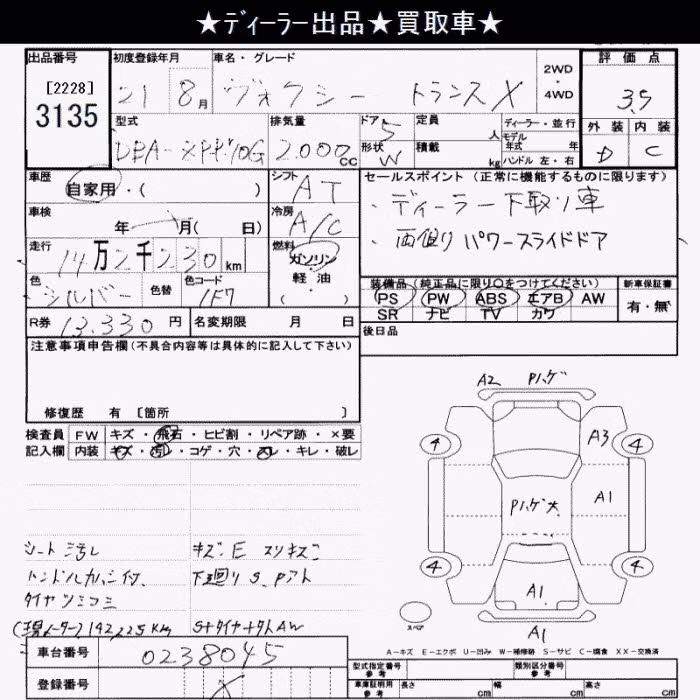 ★ディーラー出品★買取車★
出品番号 初度登録年月 車名・グレード 2WD・4WD 評価点
[2228]
3135
21 8月 ヴォクシー トランスX
3.5
型式 排気量 ドア 定員 人 ディーラー・並行
モデル年式 年
外装 内装
DBA- 2.000cc 5
形状 W 積載 kg ハンドル 左・右
D C
車歴 自家用・( ) シフト AT
セールスポイント(正常に機能するものに限ります)
・ディーラー下取り車
・両側りパワースライドドア
車検 年 月( 日) 冷房 A/C
走行 14万2千230km 燃料 ガソリン・軽油・( )
色 シルバー 色替 色コード 1F7
装備品(純正品に限り○をつけてください) 新車保証書
PS PW ABS エアB AW 有・無
SR ナビ TV カワ
R券 13.330円 名変期限 月 日
後日品
注意事項申告欄(不具合内容等は具体的に記入して下さい)
修復歴 有 [箇所 ]
検査員記入欄 FW キズ・飛石・ヒビ割・リペア跡・×要
内装 キズ・汚レ・コゲ・穴・スレ・キレ・破レ
A2 Pハゲ
4 A3 4
Pハゲ大 A1
4 A1 4
スペア A1
シート 汚レ
キズ・E スリキズ
下廻りS.
タイヤツミコミ
(現メーター)142,225km
A-キズ E-エクボ U-凹み W-補修跡 S-サビ C-腐食 XX-交換済
車台番号 0238045
登録番号 X
型式指定番号 参考 類別区分番号 参考
車庫証明用 参考 長さ cm 幅 cm 高さ cm